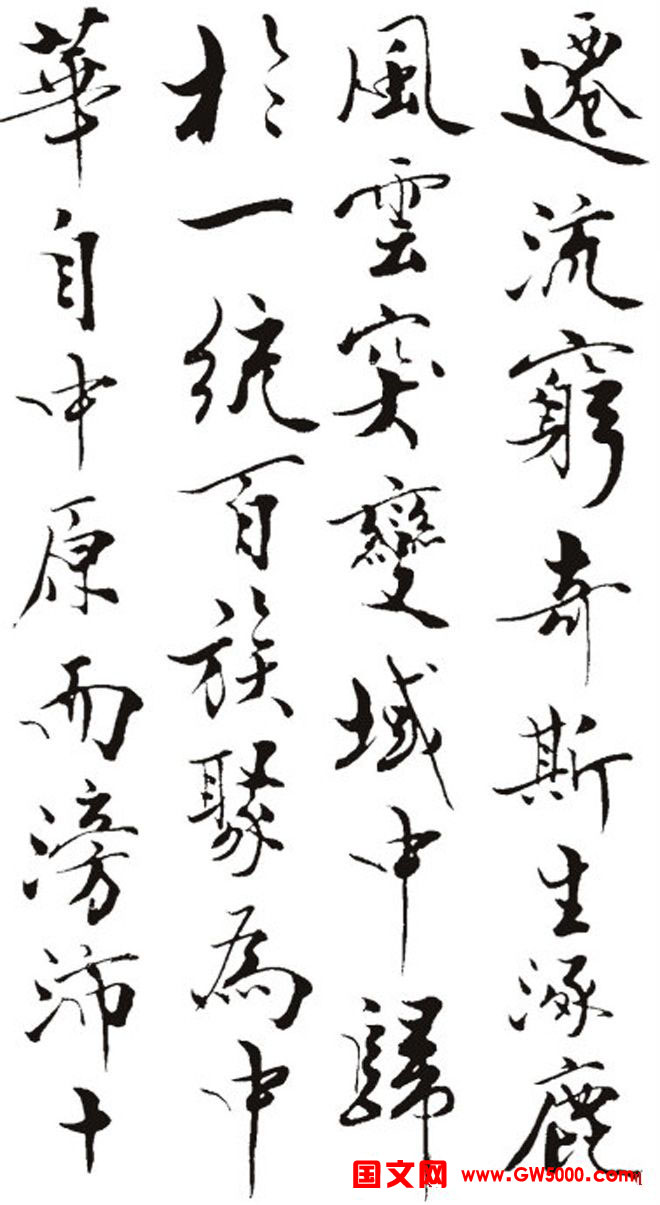 遷流窮奇斯生涿鹿
風雲突變域中歸
於一統百族聚為中
華自中原而滂沛十
国文网 www.GW5000.com